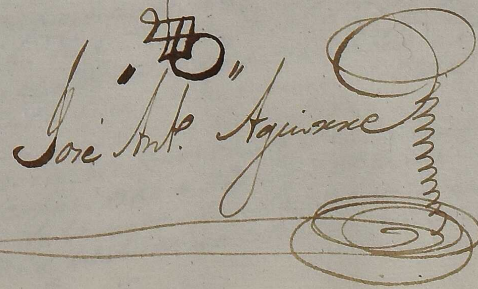 José Anto. Aguirre